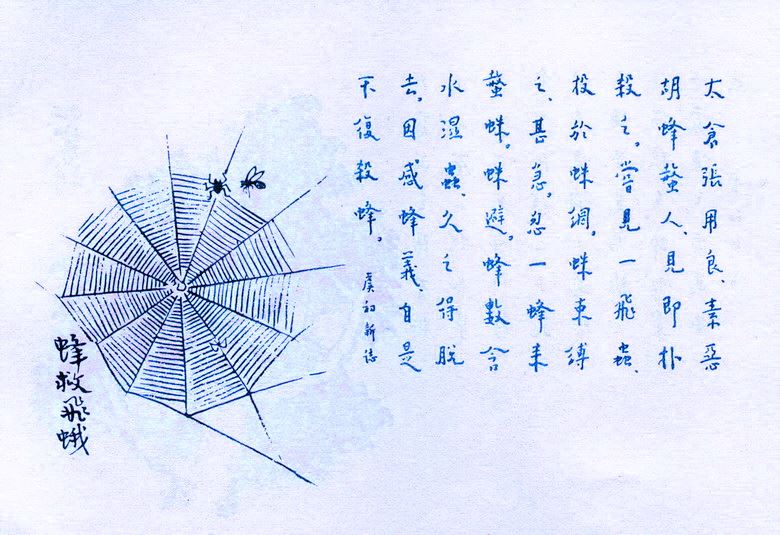 太倉張用良、素惡
胡蜂螫人、見即朴
殺之。嘗見一飛蟲、
投於蛛網。蛛束縛
之、甚急。忽一蜂来
螫蛛。蛛避。蜂數含
水湿蟲、久之得脫
去。因感蜂義、自是
不復殺蜂。
虞初新誌
蜂救飛蛾